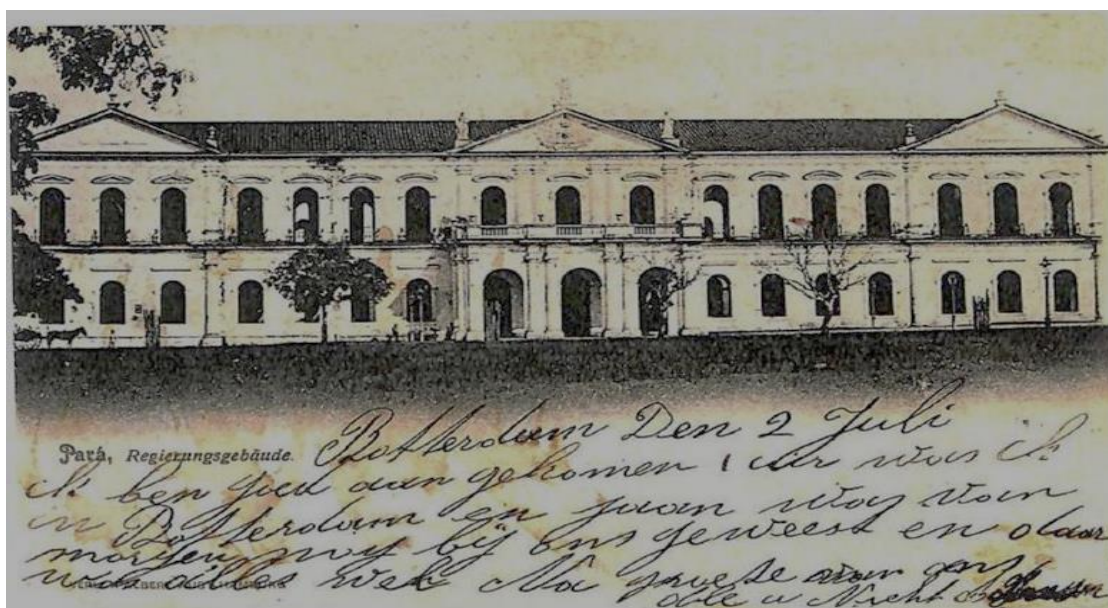 Pará, Regierungsgebäude.
Rotterdam Den 2 Juli
ik ben goed aan gekomen 1 uur was ik
in Rotterdam en was van
morgen nog bij ons geweest en daar
was alles wel Na groete van ons
alle u Nicht